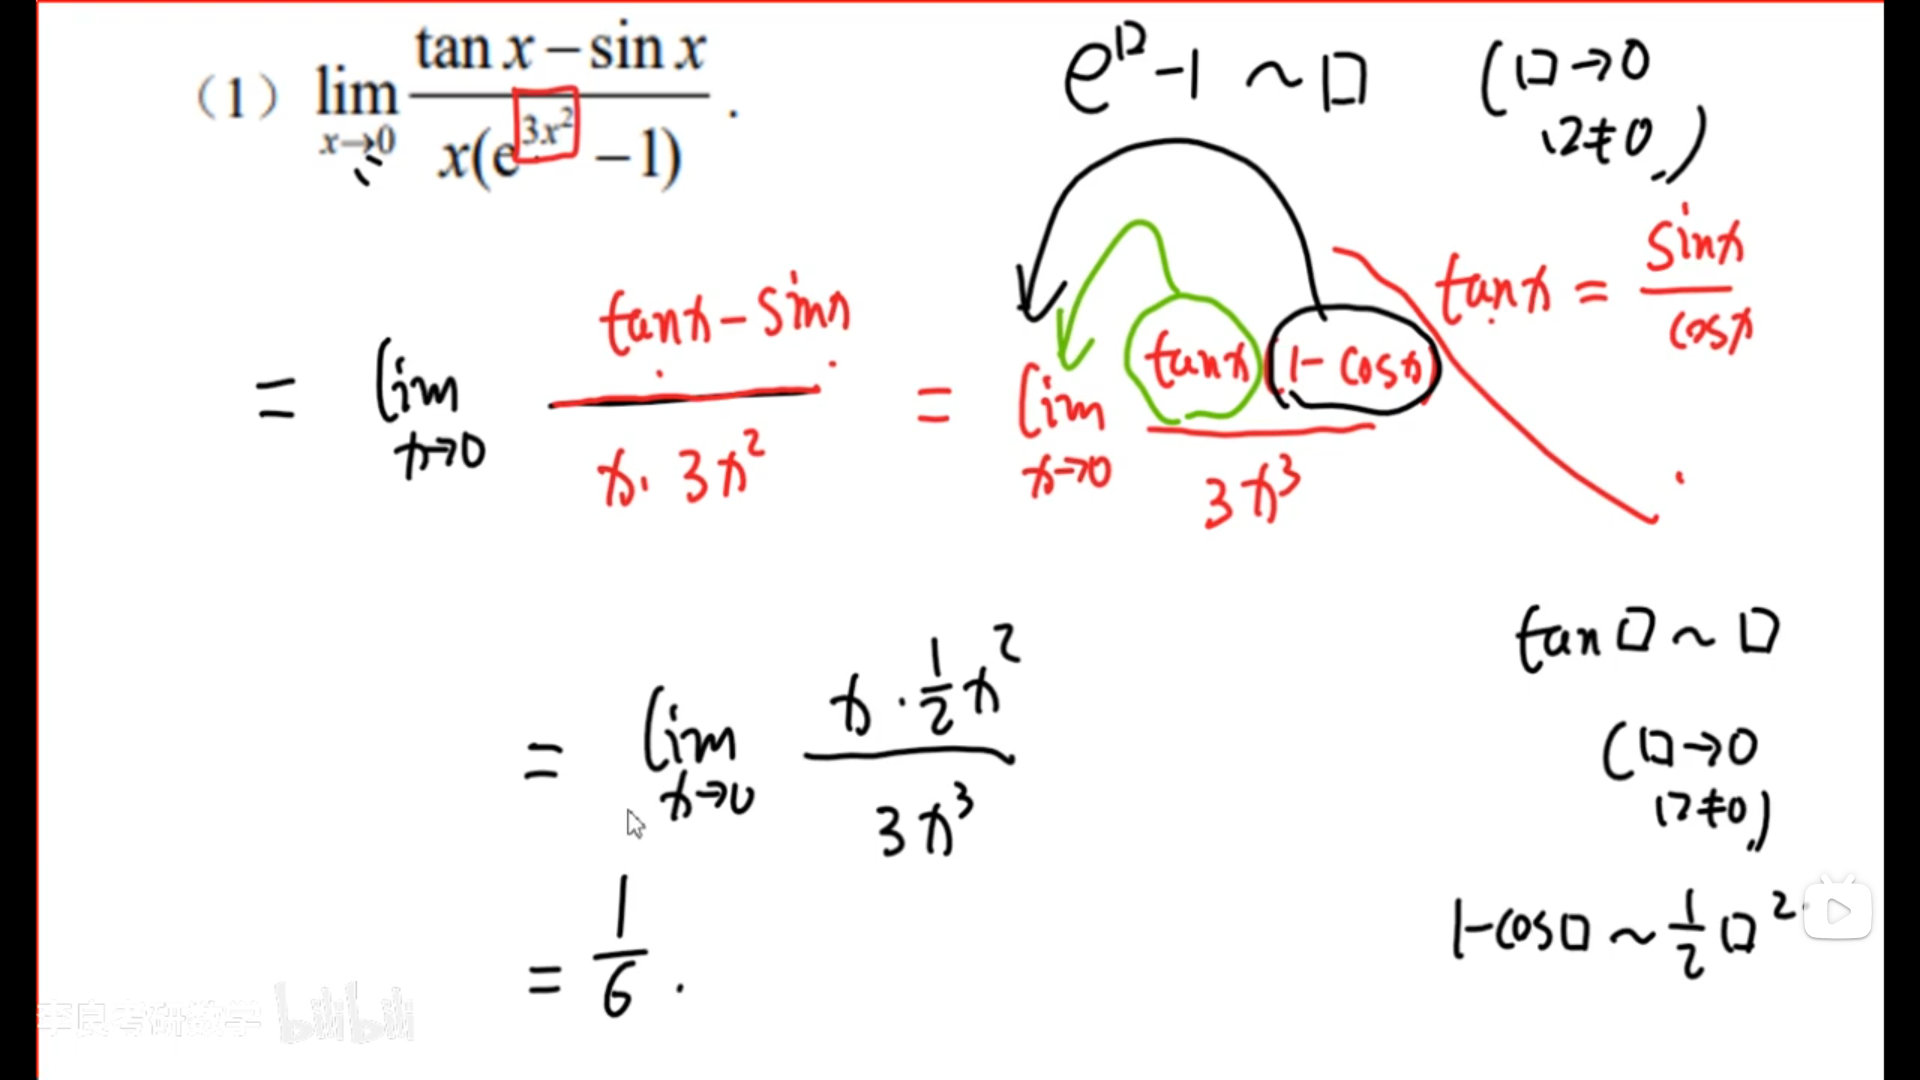 (1) lim_{x→0} (tan x − sin x) / (x(e^{3x²} − 1)) .
e^□ − 1 ~ □ (□→0
□≠0)
= lim_{x→0} (tanx − sinx) / (x · 3x²) = lim_{x→0} tanx(1 − cosx) / (3x³)
tanx = sinx / cosx
= lim_{x→0} (x · ½x²) / (3x³)
tan□ ~ □
(□→0
□≠0)
1−cos□ ~ ½□²
= 1/6 .
李良考研数学 bilibili